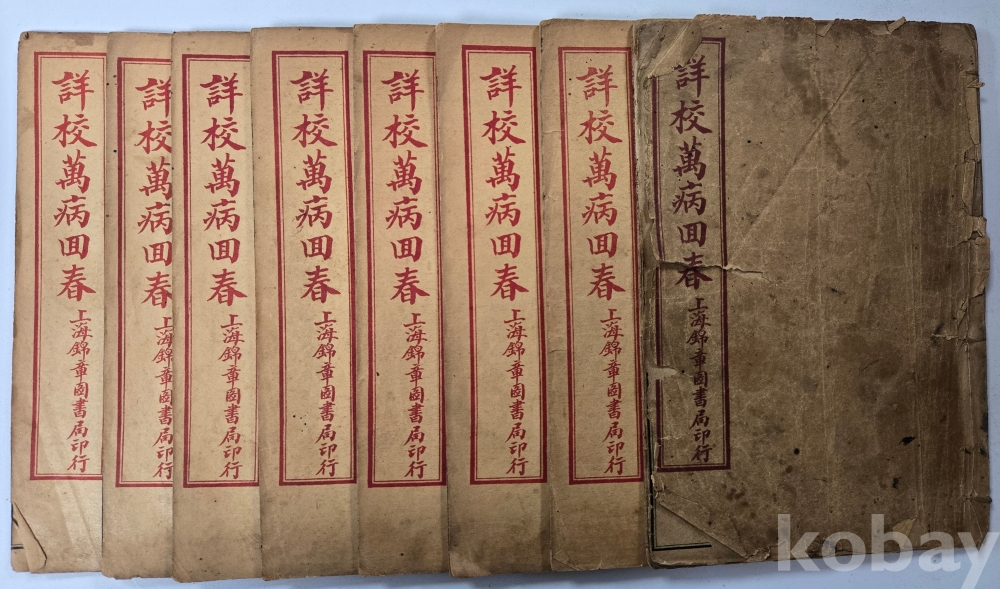 詳校萬病囬春 上海錦章圖書局印行
詳校萬病囬春 上海錦章圖書局印行
詳校萬病囬春 上海錦章圖書局印行
詳校萬病囬春 上海錦章圖書局印行
詳校萬病囬春 上海錦章圖書局印行
詳校萬病囬春 上海錦章圖書局印行
詳校萬病囬春 上海錦章圖書局印行
詳校萬病囬春 上海錦章圖書局印行
kobay